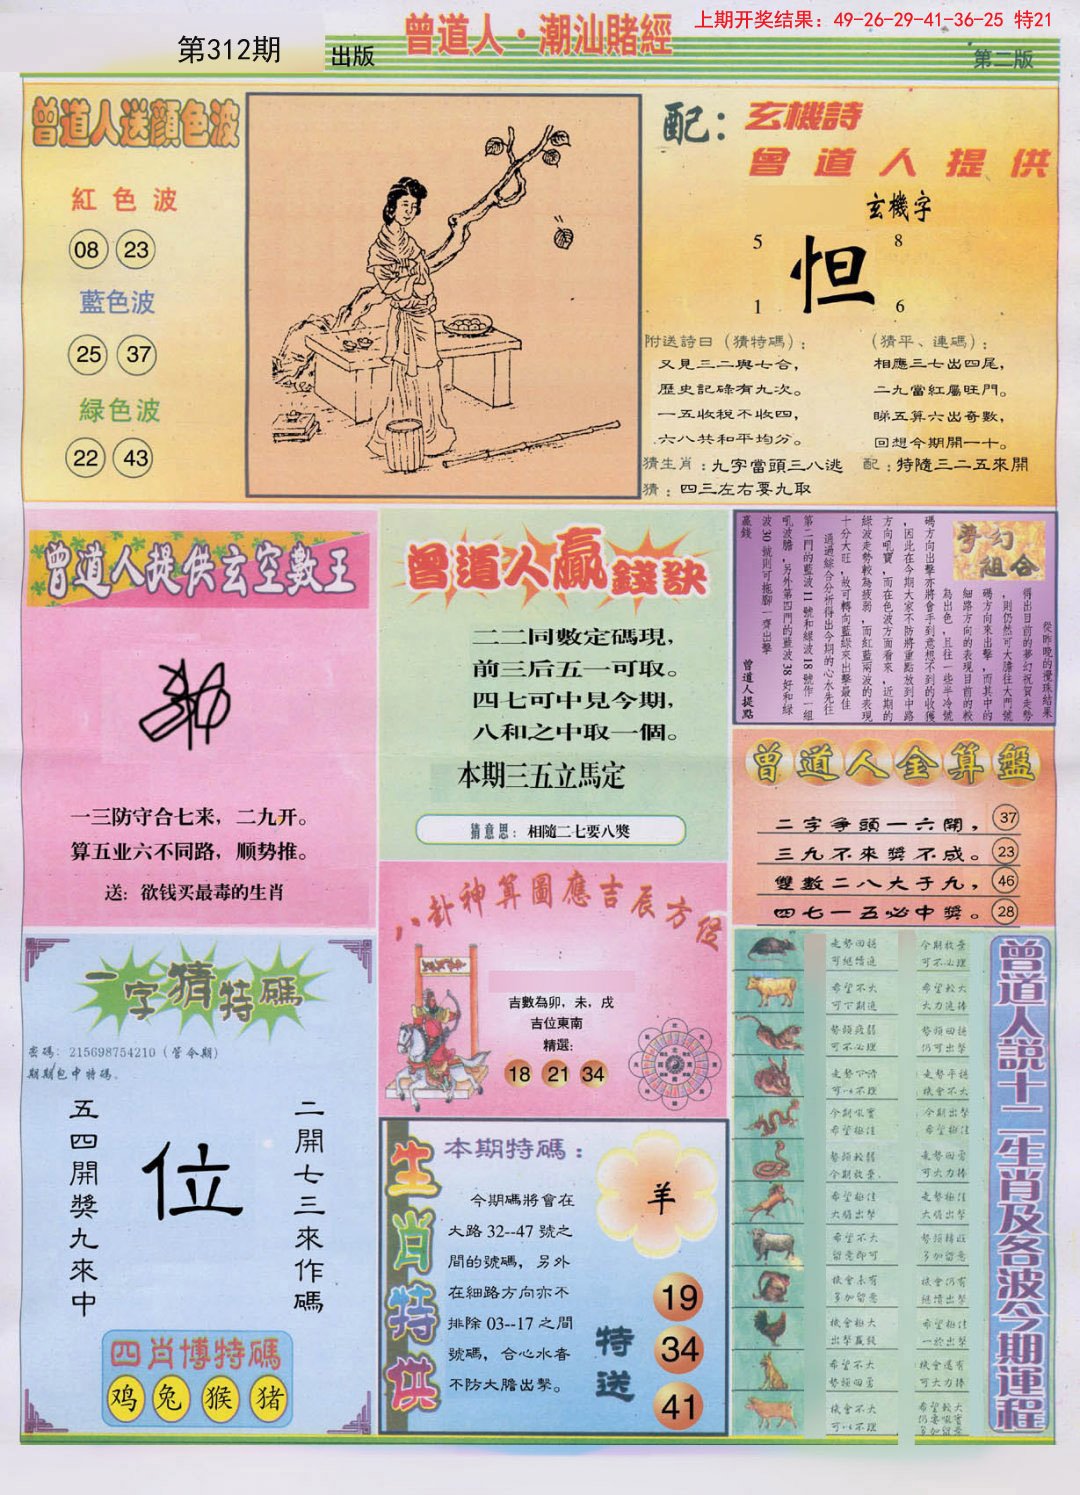 上期开奖结果：49-26-29-41-36-25 特21
第312期
出版
曾道人·潮汕賭經
第二版
曾道人送顏色波
紅色波
08 23
藍色波
25 37
緑色波
22 43
配：玄機詩
曾道人提供
玄機字
5 8
怛
1 6
附送詩曰（猜特碼）：
又見三二與七合，
歷史記碌有九次。
一五收稅不收四，
六八共和平均分。
（猜平、連碼）：
相應三七出四尾，
二九當紅屬旺門。
睇五算六出奇數，
回想今期開一十。
猜生肖：九字當頭三八逃
配：特隨三二五來開
猜：四三左右要九取
曾道人提供玄空數王
一三防守合七来，二九开。
算五业六不同路，顺势推。
送：欲钱买最毒的生肖
曾道人贏錢訣
二二同數定碼現，
前三后五一可取。
四七可中見今期，
八和之中取一個。
本期三五立馬定
猜意思：相隨二七要八獎
夢幻組合
從昨晚的攪珠結果
得出目前的夢幻祝賀走勢
，則仍然可大膽往大門號
碼方向來出擊，而其中的
細路方向的表現目前的較
為出色，且往一些半冷號
碼方向出擊亦將會手到意想不到的收獲
，因此在今期大家不防將重點放到中路
方向吼寶，而在色波方面看來，近期的
綠波走勢較為疲弱，而紅藍兩波的表現
十分大旺，故可轉向藍綠來出擊最佳
通過綜合分析得出今期的心水先往
第二門的藍波11號和綠波18號作一組
吼波膽，另外第四門的藍波38好和綠
波30號則可拖腳一齊出擊
贏錢
曾道人提點
曾道人金算盤
二字爭頭一六開， 37
三九不來獎不成。 23
雙數二八大于九， 46
四七一五必中獎。 28
八卦神算圖應吉辰方位
吉數為卯，未，戌
吉位東南
精選：
18 21 34
一字猜特碼
密碼：215698754210（管令期）
期期包中特碼。
二開七三來作碼
位
五四開獎九來中
四肖博特碼
鸡 兔 猴 猪
生肖特供
本期特碼：
今期碼將會在
大路32--47號之
間的號碼，另外
在細路方向亦不
排除03--17之間
號碼，合心水者
不防大膽出擊。
羊
特送
19
34
41
曾道人說十二生肖及各波今期運程
走勢回穩 今期收棄
可継續追 可不必理
希望不大 希望較大
可下期追 大力追捧
勢頭疲弱 勢頭回穩
可不必理 仍可出擊
走勢下滑 走勢平穩
可以不理 機會不大
今期吼寶 今期出擊
希望極佳 希望極佳
勢頭較弱 走勢回勇
今期收棄 可大力捧
希望極佳 走勢極佳
大膽出擊 大膽出擊
希望不大 勢頭轉跌
留意即可 多加留意
機會未有 機會仍有
多加留意 継續出擊
機會極大 希望極佳
出擊贏錢 一於出擊
希望不大 機會還有
勢頭回勇 可大力捧
機會不大 希望較大
可以不理 仍要吼實
多加留意